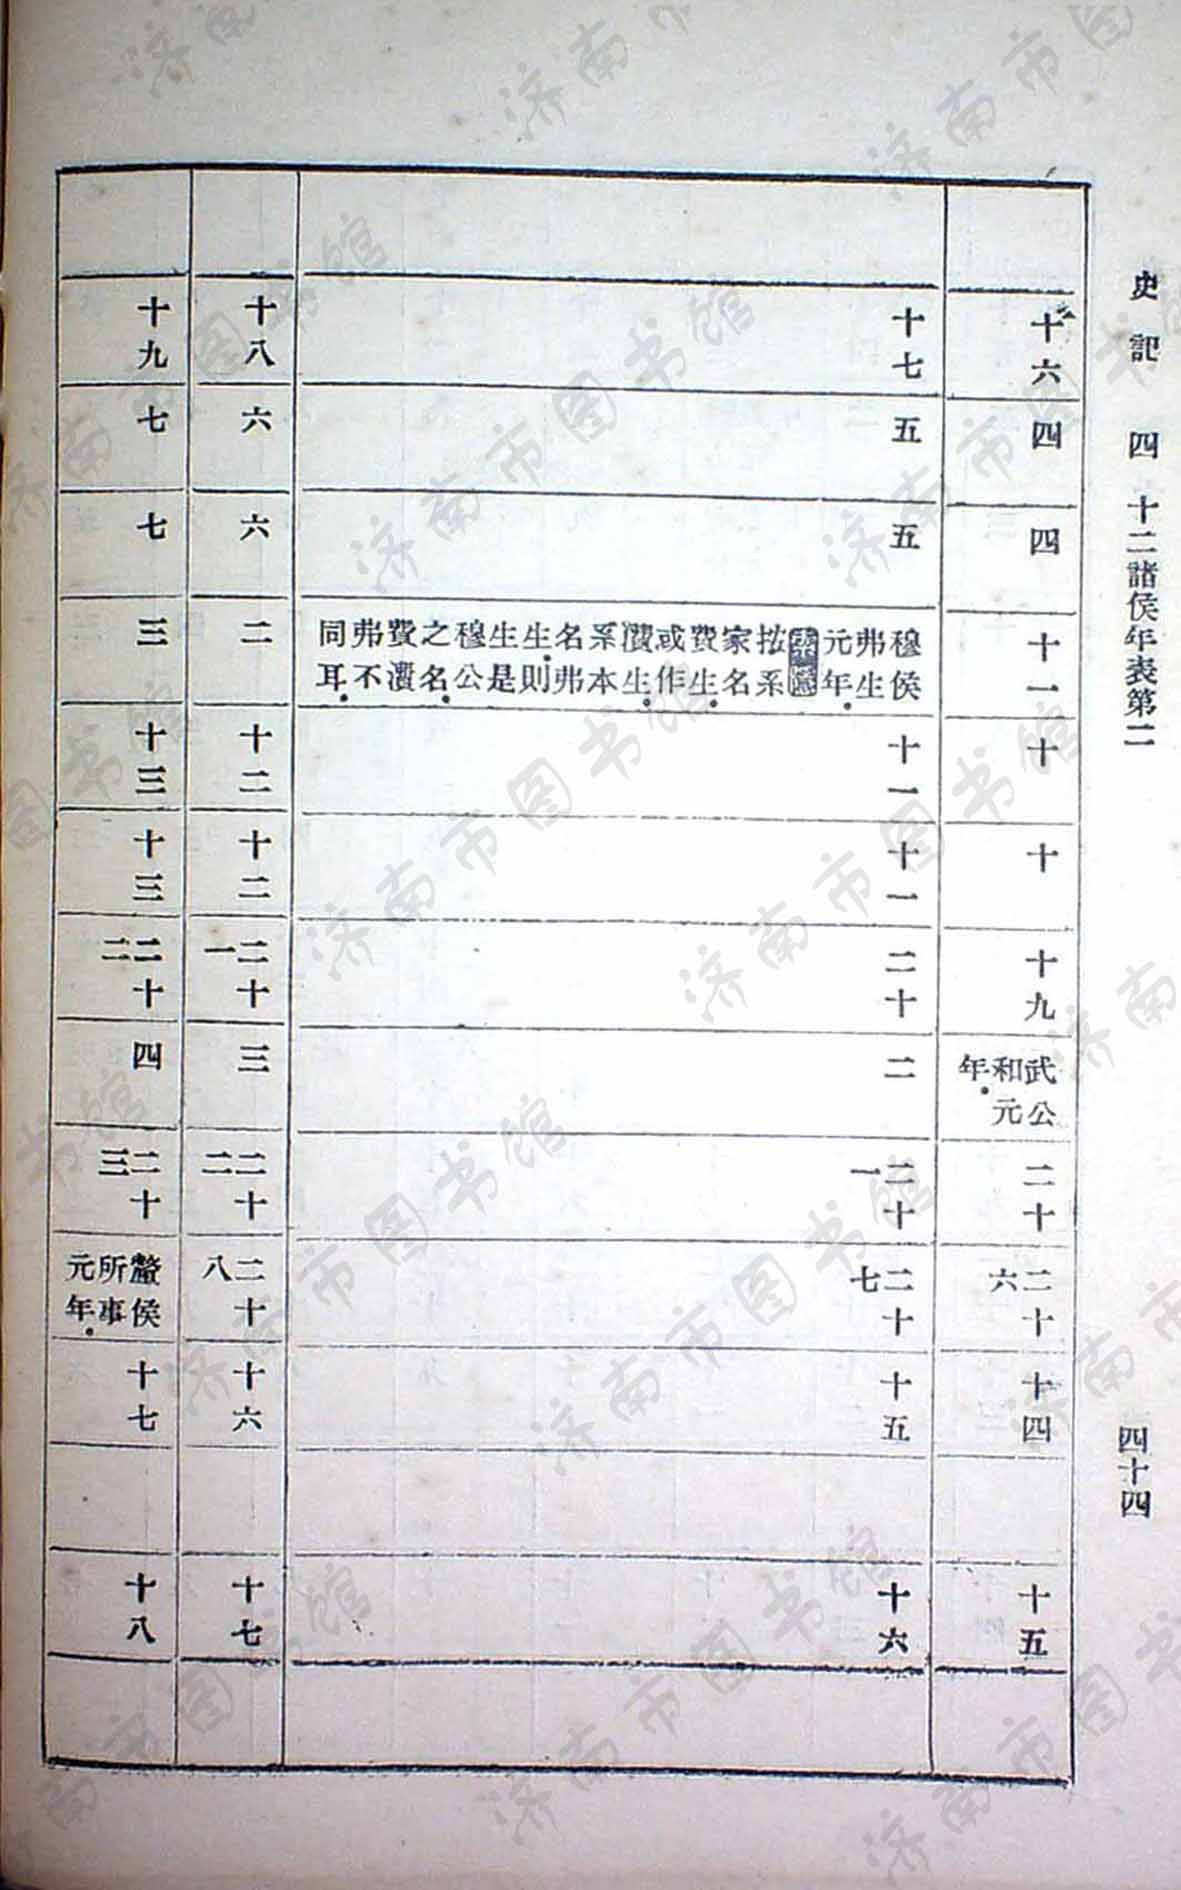 史記　四　十二諸侯年表第二　四十四
十六
四
四
十一
十
十
十九
武公和元年
二十
二十六
十四
十五
十七
五
五
穆侯弗生元年索隱按系家名費生或作潰生系本名弗生則生是穆公之名費潰弗不同耳
十一
十一
二十
二
二十一
二十七
十五
十六
十八
六
六
二
十二
十二
二十一
三
二十二
二十八
十六
十七
十九
七
七
三
十三
十三
二十二
四
二十三
釐侯所事元年
十七
十八
济南市图书馆